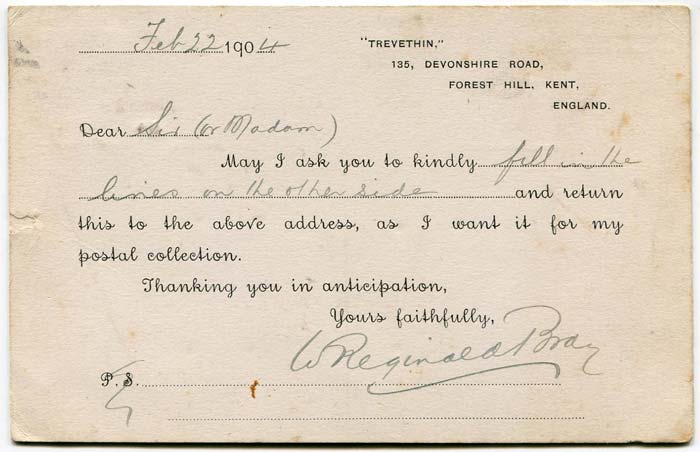 Feb 22 1904
"TREVETHIN,"
135, DEVONSHIRE ROAD,
FOREST HILL, KENT,
ENGLAND.
Dear Sir (or Madam)
May I ask you to kindly fill in the
lines on the other side and return
this to the above address, as I want it for my
postal collection.
Thanking you in anticipation,
Yours faithfully,
W Reginald Bray
P. S.